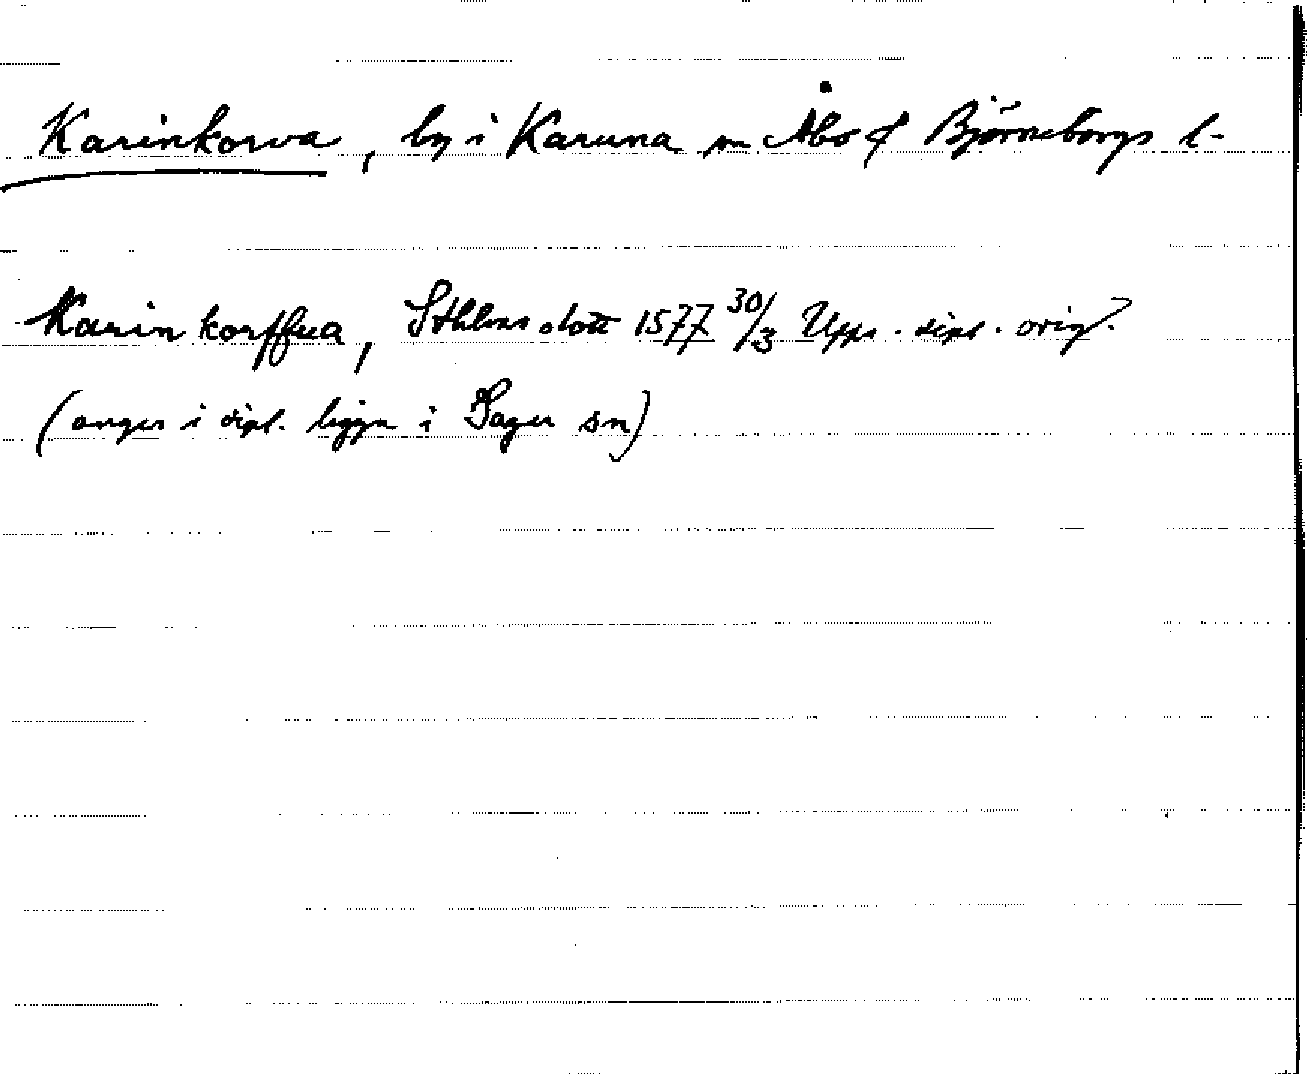 Karinkorva, by i Karuna sn Åbo o Björneborgs l-
Karin korffua, Sthlms slott 1577 30/3 Upps. dipl. orig.
(anges i dipl. ligga i Sager sn)